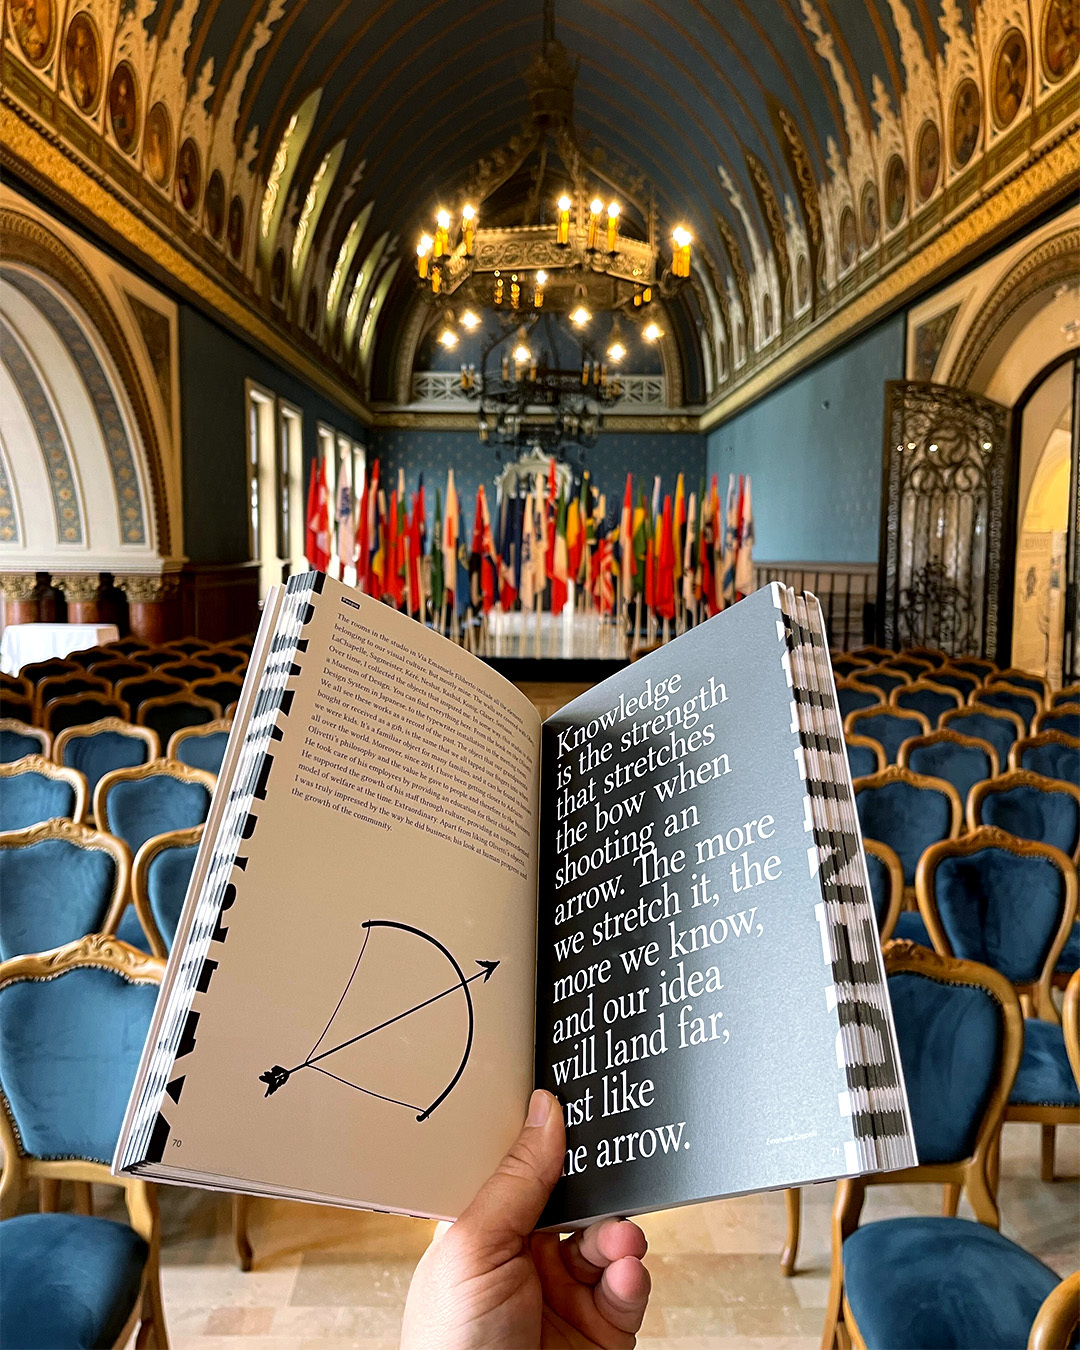 The rooms in the studio in Via Emanuele Filiberto include all the elements
belonging to our visual culture. But mostly mine. The walls covered with the
LaChapelle, Sagmeister, Keré, Neshat, Rashid, Konig, Glaser, Sottsass
Over time, I collected the objects that inspired me. In some way, the studio is
a Museum of Design. You can find everything here. From the book on the
Design System in Japanese, to the typewriter installation in the next room.
We all see these works as a record of the past. The objects that our grandparents
bought or received as a gift, is the same that we all tapped our fingers on when
we were kids. It's a familiar object for many families, and it can be found in homes
all over the world. Moreover, since 2014, I have been getting closer to Adriano
Olivetti's philosophy and the value he gave to people and therefore to the business.
He took care of his employees by providing an education for their children.
He supported the growth of his staff through culture, providing an unprecedented
model of welfare at the time. Extraordinary. Apart from liking Olivetti's objects,
I was truly impressed by the way he did business; his look at human progress and
the growth of the community.
70
Knowledge
is the strength
that stretches
the bow when
shooting an
arrow. The more
we stretch it, the
more we know,
and our idea
will land far,
ust like
he arrow.
71